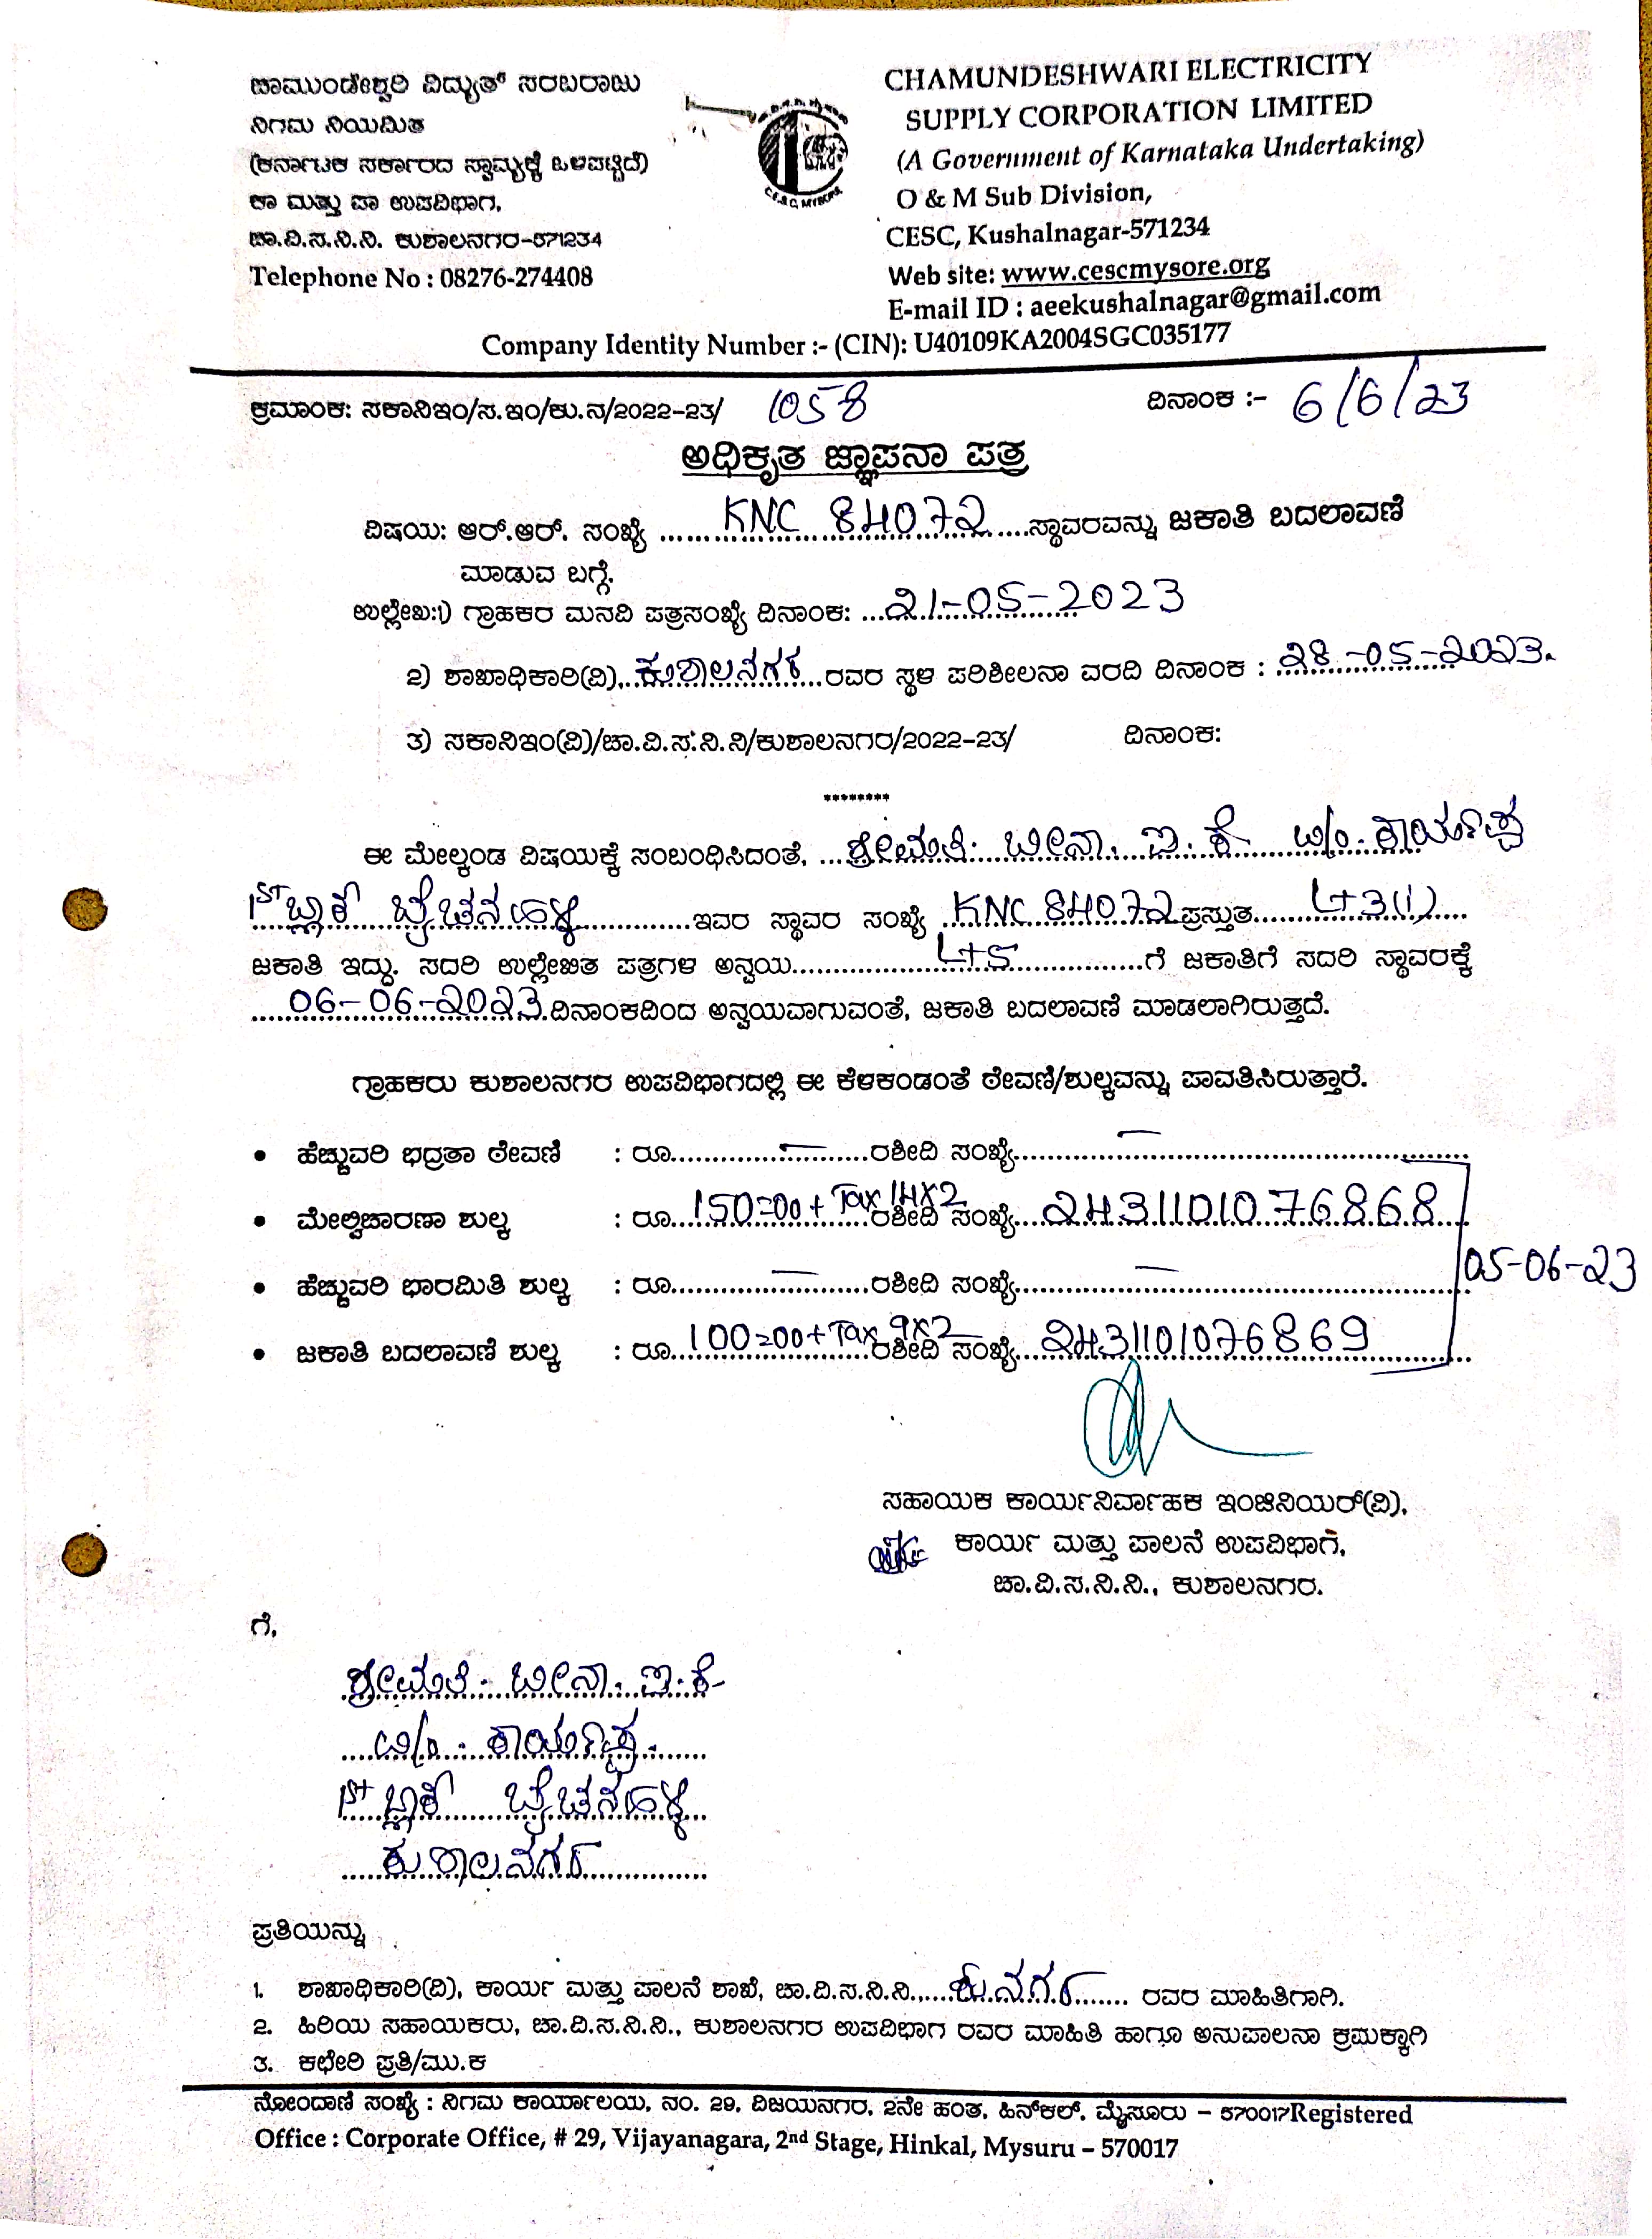 ಚಾಮುಂಡೇಶ್ವರಿ ವಿದ್ಯುತ್ ಸರಬರಾಜು
ನಿಗಮ ನಿಯಮಿತ
(ಕರ್ನಾಟಕ ಸರ್ಕಾರದ ಸ್ವಾಮ್ಯಕ್ಕೆ ಒಳಪಟ್ಟಿದೆ)
ಕಾ ಮತ್ತು ಪಾ ಉಪವಿಭಾಗ,
ಚಾ.ವಿ.ಸ.ನಿ.ನಿ. ಕುಶಾಲನಗರ-571234
Telephone No : 08276-274408
CHAMUNDESHWARI ELECTRICITY
SUPPLY CORPORATION LIMITED
(A Government of Karnataka Undertaking)
O & M Sub Division,
CESC, Kushalnagar-571234
Web site: www.cescmysore.org
E-mail ID : aeekushalnagar@gmail.com
Company Identity Number :- (CIN): U40109KA2004SGC035177
ಕ್ರಮಾಂಕ: ಸಕಾನಿಇಂ/ಸ.ಇಂ/ಕು.ನ/2022-23/ 1058 ದಿನಾಂಕ :- 6/6/23
ಅಧಿಕೃತ ಜ್ಞಾಪನಾ ಪತ್ರ
ವಿಷಯ: ಆರ್.ಆರ್. ಸಂಖ್ಯೆ KNC 84072 ಸ್ಥಾವರವನ್ನು ಜಕಾತಿ ಬದಲಾವಣೆ
ಮಾಡುವ ಬಗ್ಗೆ.
ಉಲ್ಲೇಖ:1) ಗ್ರಾಹಕರ ಮನವಿ ಪತ್ರಸಂಖ್ಯೆ ದಿನಾಂಕ: 21-05-2023
2) ಶಾಖಾಧಿಕಾರಿ(ವಿ), ಕುಶಾಲನಗರ ರವರ ಸ್ಥಳ ಪರಿಶೀಲನಾ ವರದಿ ದಿನಾಂಕ : 28-05-2023.
3) ಸಕಾನಿಇಂ(ವಿ)/ಚಾ.ವಿ.ಸ.ನಿ.ನಿ/ಕುಶಾಲನಗರ/2022-23/ ದಿನಾಂಕ:
********
ಈ ಮೇಲ್ಕಂಡ ವಿಷಯಕ್ಕೆ ಸಂಬಂಧಿಸಿದಂತೆ, ಶ್ರೀಮತಿ. ಬೀನಾ. ಐ. ಕೆ W/o. ಕಾರ್ಯಪ್ಪ
1ST ಬ್ಲಾಕ್ ಬೈಚನಹಳ್ಳಿ ಇವರ ಸ್ಥಾವರ ಸಂಖ್ಯೆ KNC 84072 ಪ್ರಸ್ತುತ Lt3(i)
ಜಕಾತಿ ಇದ್ದು. ಸದರಿ ಉಲ್ಲೇಖಿತ ಪತ್ರಗಳ ಅನ್ವಯ Lt5 ಗೆ ಜಕಾತಿಗೆ ಸದರಿ ಸ್ಥಾವರಕ್ಕೆ
06-06-2023 ದಿನಾಂಕದಿಂದ ಅನ್ವಯವಾಗುವಂತೆ, ಜಕಾತಿ ಬದಲಾವಣೆ ಮಾಡಲಾಗಿರುತ್ತದೆ.
ಗ್ರಾಹಕರು ಕುಶಾಲನಗರ ಉಪವಿಭಾಗದಲ್ಲಿ ಈ ಕೆಳಕಂಡಂತೆ ಠೇವಣಿ/ಶುಲ್ಕವನ್ನು ಪಾವತಿಸಿರುತ್ತಾರೆ.
• ಹೆಚ್ಚುವರಿ ಭದ್ರತಾ ಠೇವಣಿ : ರೂ. — ರಶೀದಿ ಸಂಖ್ಯೆ —
• ಮೇಲ್ವಿಚಾರಣಾ ಶುಲ್ಕ : ರೂ. 150=00 + Tax 14x2 ರಶೀದಿ ಸಂಖ್ಯೆ 2431101076868
05-06-23
• ಹೆಚ್ಚುವರಿ ಭಾರಮಿತಿ ಶುಲ್ಕ : ರೂ. — ರಶೀದಿ ಸಂಖ್ಯೆ —
• ಜಕಾತಿ ಬದಲಾವಣೆ ಶುಲ್ಕ : ರೂ. 100=00 + Tax 9x2 ರಶೀದಿ ಸಂಖ್ಯೆ 2431101076869
ಸಹಾಯಕ ಕಾರ್ಯನಿರ್ವಾಹಕ ಇಂಜಿನಿಯರ್(ವಿ),
ಕಾರ್ಯ ಮತ್ತು ಪಾಲನೆ ಉಪವಿಭಾಗ,
ಚಾ.ವಿ.ಸ.ನಿ.ನಿ., ಕುಶಾಲನಗರ.
ಗೆ,
ಶ್ರೀಮತಿ. ಬೀನಾ. ಐ.ಕೆ
W/o. ಕಾರ್ಯಪ್ಪ.
1st ಬ್ಲಾಕ್ ಬೈಚನಹಳ್ಳಿ
ಕುಶಾಲನಗರ
ಪ್ರತಿಯನ್ನು
1. ಶಾಖಾಧಿಕಾರಿ(ವಿ), ಕಾರ್ಯ ಮತ್ತು ಪಾಲನೆ ಶಾಖೆ, ಚಾ.ವಿ.ಸ.ನಿ.ನಿ., ಕು.ನಗರ ರವರ ಮಾಹಿತಿಗಾಗಿ.
2. ಹಿರಿಯ ಸಹಾಯಕರು, ಚಾ.ವಿ.ಸ.ನಿ.ನಿ., ಕುಶಾಲನಗರ ಉಪವಿಭಾಗ ರವರ ಮಾಹಿತಿ ಹಾಗೂ ಅನುಪಾಲನಾ ಕ್ರಮಕ್ಕಾಗಿ
3. ಕಛೇರಿ ಪ್ರತಿ/ಮು.ಕ
ನೋಂದಾಣಿ ಸಂಖ್ಯೆ : ನಿಗಮ ಕಾರ್ಯಾಲಯ, ನಂ. 29, ವಿಜಯನಗರ, 2ನೇ ಹಂತ, ಹಿನ್‌ಕಲ್, ಮೈಸೂರು – 570017Registered
Office : Corporate Office, # 29, Vijayanagara, 2nd Stage, Hinkal, Mysuru – 570017